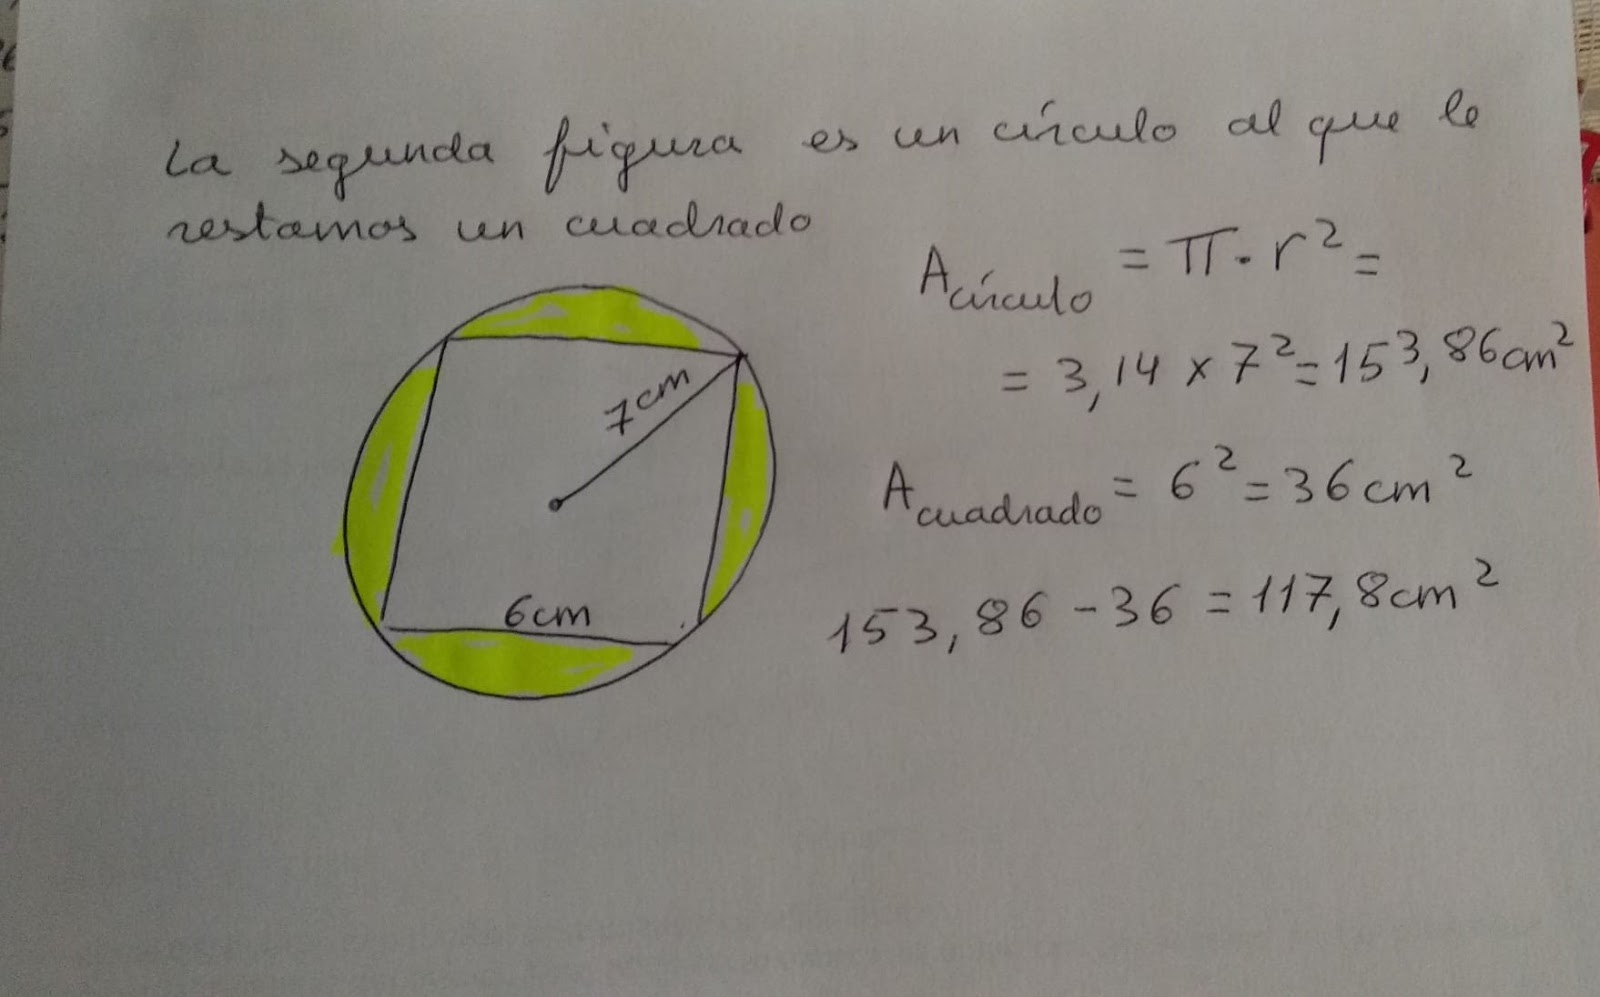 La segunda figura es un círculo al que le
restamos un cuadrado
A círculo = π · r² =
= 3,14 x 7² = 153,86 cm²
7 cm
A cuadrado = 6² = 36 cm²
6 cm
153,86 - 36 = 117,8 cm²